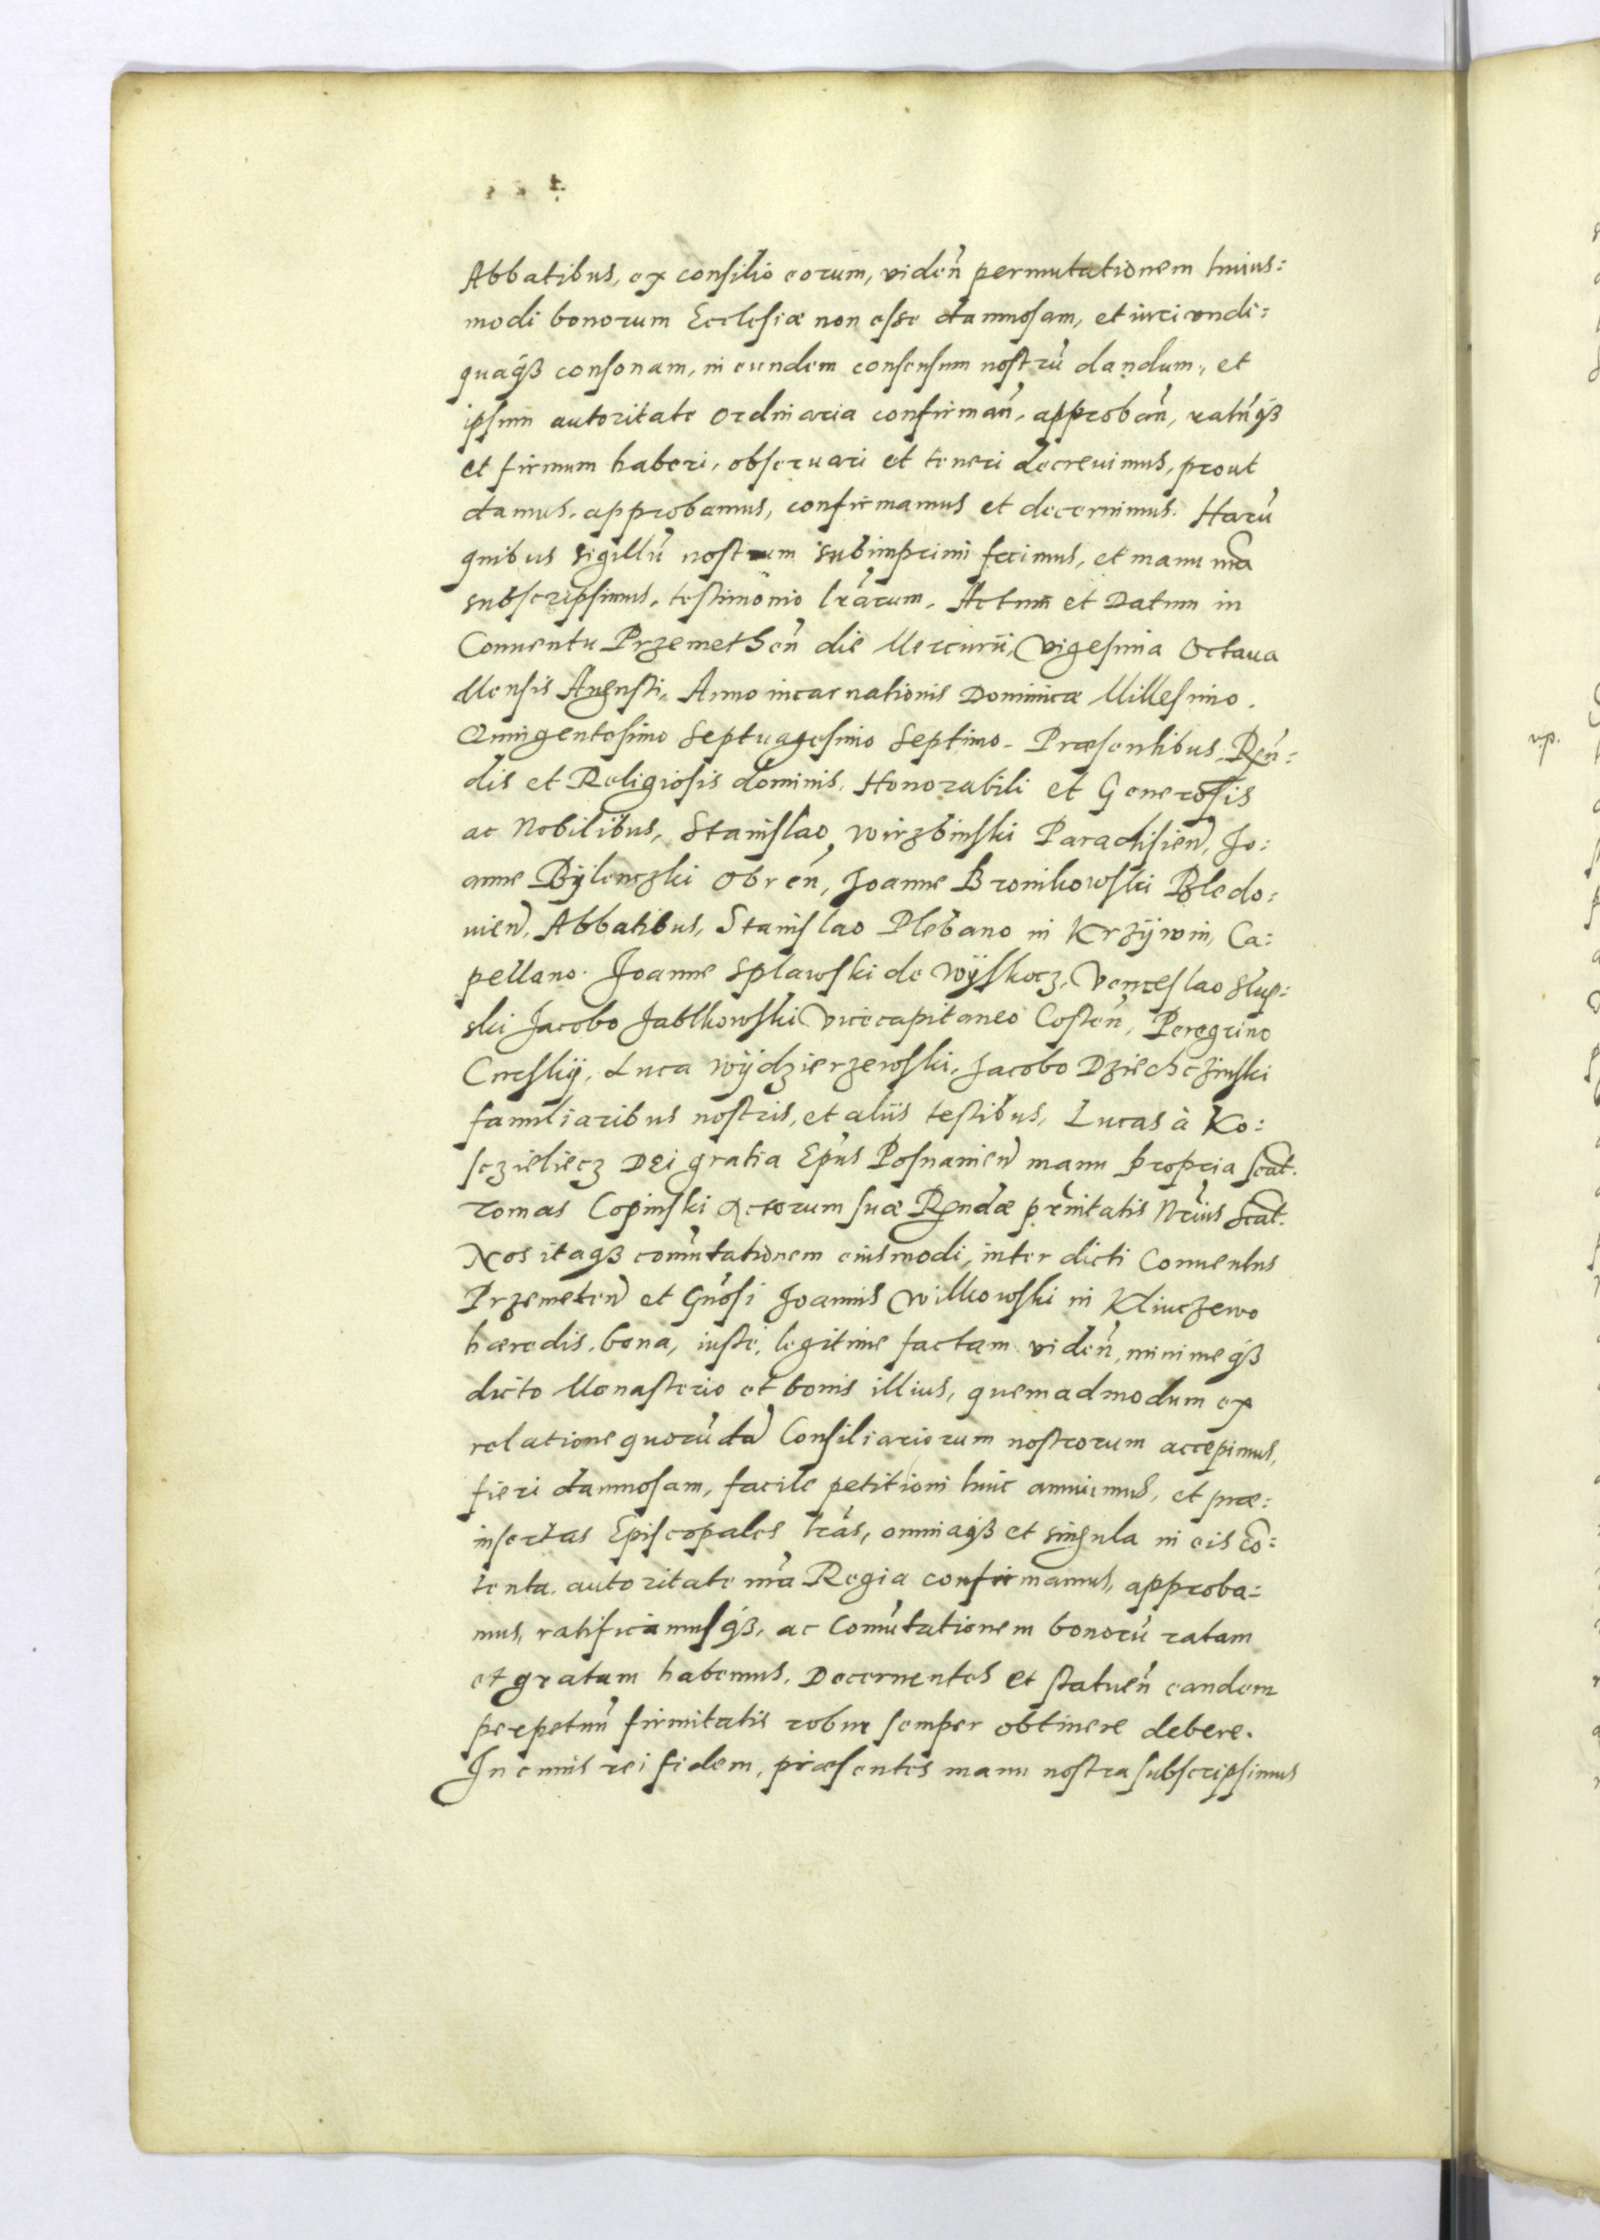 Abbatibus, ex consilio eorum, videñ permutationem huius:
modi bonorum Ecclesiæ non esse damnosam, et iuri vndi:
quaq3 consonam, in eundem consensum nostrū dandum, et
ipsum autoritate Ordinaria confirmañ, approbañ, ratūq3
et firmum haberi, obseruari et teneri decreuimus, prout
damus, approbamus, confirmamus et decernimus. Harū
quibus sigillū nostrum subimprimi fecimus, et manu nr̃a
subscripsimus, testimonio lr̃arum. Actum et Datum in
Conuentu Przemetheñ die Mercurii, Vigesima Octaua
Mensis Augusti, Anno incarnationis Dominicæ Millesimo.
Quingentesimo Septuagesimo Septimo. Præsentibus Reñ:
dis et Religiosis dominis, Honorabili et Generosis
ac Nobilibus, Stanislao Wirzbinski Paradisieñ, Jo:
anne Bÿlenczki Obreñ, Joanne Bronikowski Bledo:
uieñ, Abbatibus, Stanislao Plebano in Krzÿwin, Ca:
pellano. Joanne Splawski de Wÿskocz, Venceslao Slup:
ski Jacobo Jablkowski Vicecapitaneo Costeñ, Peregrino
Luca Wÿdzierzewski, Jacobo Dziechczinski
familiaribus nostris, et aliis testibus, Lucas à Ko:
sczieliecz Dei gratia Ep̃us Posnanieñ manu propria scr̃at.
Tomas Copinski Actorum suæ Rñdæ pr̃nitatis Nr̃ius Scr̃at.
Nos itaq3 com̃utationem eiusmodi, inter dicti Conuentus
Przemeteñ et Gñosi Joannis Wilkowski in Kliuczewo
hæredis, bona, iuste, legitime factam videñ, minimeq3
dicto Monasterio et bonis illius, quemadmodum ex
relatione quorūdã Consiliariorum nostrorum accepimus,
fieri damnosam, facile petitioni huic annuimus, et præ:
insertas Episcopales lr̃as, omniaq3 et singula in eis cõ:
tenta, autoritate nr̃a Regia confirmamus, approba:
mus, ratificamusq3, ac Com̃utationem bonorū ratam
et gratam habemus, Decernentes et statueñ eandem
perpetuū firmitatis robur semper obtinere debere.
In cuius rei fidem, præsentes manu nostra subscripsimus
up.